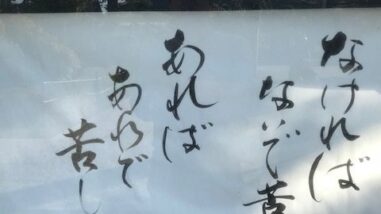 なければ
ないで苦
あれば
あれで
苦し